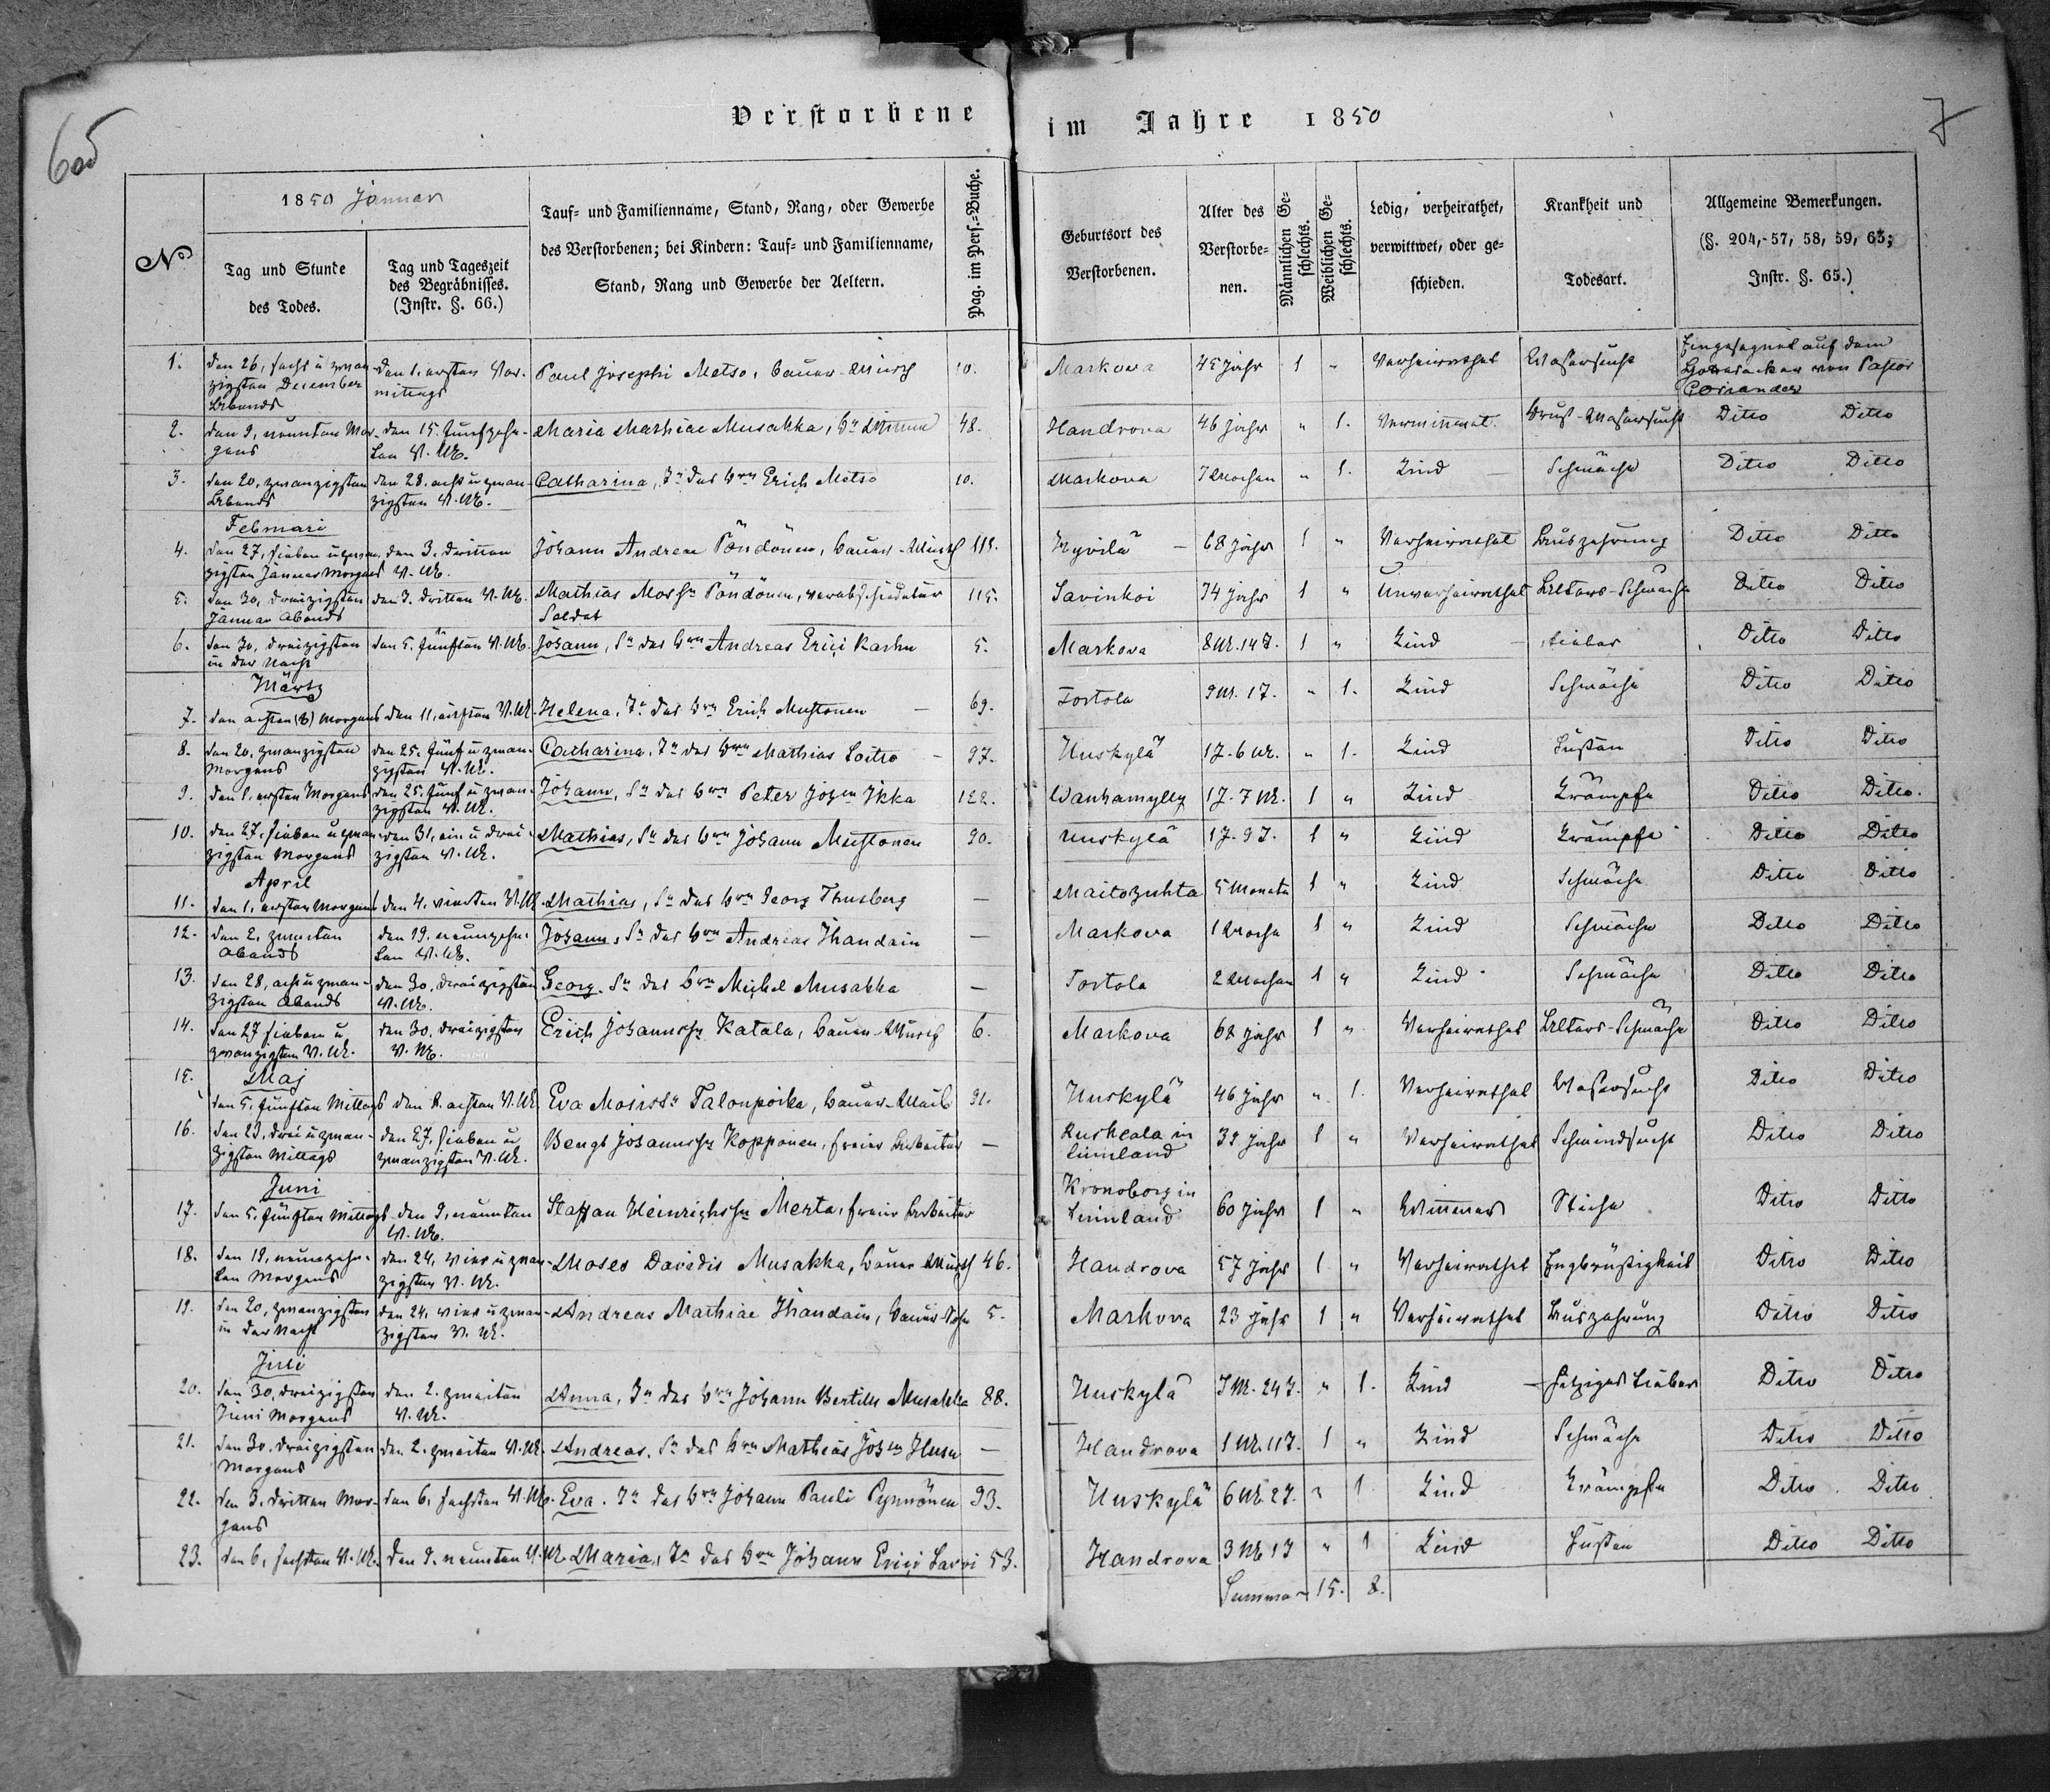 605
7
Verstorbene im Jahre 1850
№
1850 Januar
Tag und Stunde
des Todes.
Tag und Tageszeit
des Begräbnisses.
(Instr. §. 66.)
Tauf- und Familienname, Stand, Rang, oder Gewerbe
des Verstorbenen; bei Kindern: Tauf- und Familienname,
Stand, Rang und Gewerbe der Aeltern.
Pag. im Pers.-Buche.
Geburtsort des
Verstorbenen.
Alter des
Verstorbe-
nen.
Männlichen Ge-
schlechts.
Weiblichen Ge-
schlechts.
Ledig, verheirathet,
verwittwet, oder ge-
schieden.
Krankheit und
Todesart.
Allgemeine Bemerkungen.
(§. 204,-57, 58, 59, 63;
Instr. §. 65.)
1. den 26, sechs u zwan- den 1. ersten Vor- Paul Josephi Metso, Bauer-Wirth 10. Markova 45 Jahr 1 " Verheirathet Wasersucht Eingesegnet auf dem
zigsten December mittags Gottesacker von Pastor
Abends Coriander
2. den 9, neunten Mor- den 15. funfzehn- Maria Mathiae Musakka, 48. Handrova 46 Jahr " 1. Brust-Wasersucht Ditto Ditto
gens ten V. M.
3. den 20, zwanzigsten den 28. acht u zwan- Catharina, Tr des Brn Erich Metso 10. Markova 7 Wochen " 1. Kind Schwäche Ditto Ditto
Abends zigsten V. M.
Februari
4. den 27, sieben u zwan- den 3. dritten Johann Andreae Pöndönen, Bauer-Wirth 115. Hyvilä 68 Jahr 1 " Verheirathet Auszehrung Ditto Ditto
zigsten Januar Morgens V. M.
5. den 30, dreizigsten den 3. dritten V. M. Mathias Pöndönen, verabschiedeter 115. Savinkoi 74 Jahr 1 " Unverheirathet Alters-Schwäche Ditto Ditto
Januar Abends Soldat
6. den 30, dreizigsten den 5. fünften V. M. Johann, Sn des Brn Andreas Erici Karhu 5. Markova 8 M. 14 T. 1 " Kind Fieber Ditto Ditto
in der Nacht
Märtz
7. den achten (8) Morgens den 11, V. M. Helena, Tr des Brn Erich Mustonen 69. Tortola 9 M. 1 T. " 1. Kind Schwäche Ditto Ditto
8. den 20, zwanzigsten den 25. fünf u zwan- Catharina, Tr des Brn Mathias Loitto 97. Uuskylä 1 J. 6 M. " 1. Kind Husten Ditto Ditto
Morgens zigsten V. M.
9. den 1. ersten Morgens den 25. fünf u zwan- Johann, Sn des Brn Peter Ikka 122. Wanhamylly 1 J. 7 M. 1 " Kind Krämpfe Ditto Ditto.
zigsten V. M.
10. den 27, sieben u zwan- den 31, ein u drei- Mathias, Sn des Brn Johann Mustonen 90. Uuskylä 1 J. 9 T. 1 " Kind Krämpfe Ditto Ditto
zigsten Morgens zigsten V. M.
April
11. den 1, ersten Morgens den 4. vierten V. M. Mathias, Sn des Brn Georg Thusberg — Maitozuhta 5 Monate 1 " Kind Schwäche Ditto Ditto
12. den 2, zweiten den 19. neunzehn- Johann, Sn des Brn Andreas Ihandain — Markova 1 Woche 1 " Kind Schwäche Ditto Ditto
Abends ten V. M.
13. den 28, acht u zwan- den 30, dreizigsten Georg, Sn des Brn Michel Musakka — Tortola 2 Wochen 1 " Kind Schwäche Ditto Ditto
zigsten Abends V. M.
14. den 27 sieben u den 30. dreizigsten Erich Johannssn Katala, Bauer-Wirth 6. Markova 68 Jahr 1 " Verheirathet Alters-Schwäche Ditto Ditto
zwanzigsten V. M. V. M.
Maj
15. den 5. fünften Mittags den 8. achten V. M. Eva Talonpoika, Bauer-Weib 91. Uuskylä 46 Jahr " 1. Verheirathet Wasersucht Ditto Ditto
16. den 23, drei u zwan- den 27, sieben u Bengt Johannssn Kopponen, freier Arbeiter — Ruskeala in 39 Jahr 1 " Verheirathet Schwindsucht Ditto Ditto
zigsten Mittags zwanzigsten V. M. Finnland
Juni
17. den 5. fünften Mittags den 9, neunten Staffan Heinrichssn Merta, freier Arbeiter Kronoborg in 60 Jahr 1 " Wittwer Stiche Ditto Ditto
V. M. Finnland
18. den 19, neunzehn- den 24, vier u zwan- Moses Davidis Musakka, Bauer-Wirth 46. Handrova 57 Jahr 1 " Verheirathet Engbrüstigkeit Ditto Ditto
ten Morgens zigsten V. M.
19. den 20, zwanzigsten den 24. vier u zwan- Andreas Mathiae Ihandain, Bauer-Sohn 5. Markova 23 Jahr 1 " Verheirathet Auszehrung Ditto Ditto
in der Nacht zigsten V. M.
Juli
20. den 30, dreizigsten den 2. zweiten Anna, Tr des Brn Johann Bertills Musakka 88. Uuskylä 7 M. 24 T. " 1. Kind hitziges Fieber Ditto Ditto
Juni Morgens V. M.
21. den 30. dreizigsten den 2. zweiten V. M. Andreas, Sn des Brn Mathias — Handrova 1 M. 11 T. 1 " Kind Schwäche Ditto Ditto
Morgens
22. den 3. dritten Mor- den 6, sechsten V. M. Eva, Tr des Brn Johann Pauli Pynnönen 93. Uuskylä 6 M. 2 T. " 1. Kind Krämpfe Ditto Ditto
gens
23. den 6, sechsten V. M. den 9. neunten V. M. Maria, Tr des Brn Johann Erici Savi 53. Handrova 3 M 1 T " 1 Kind Husten Ditto Ditto
Summa 15. 8.